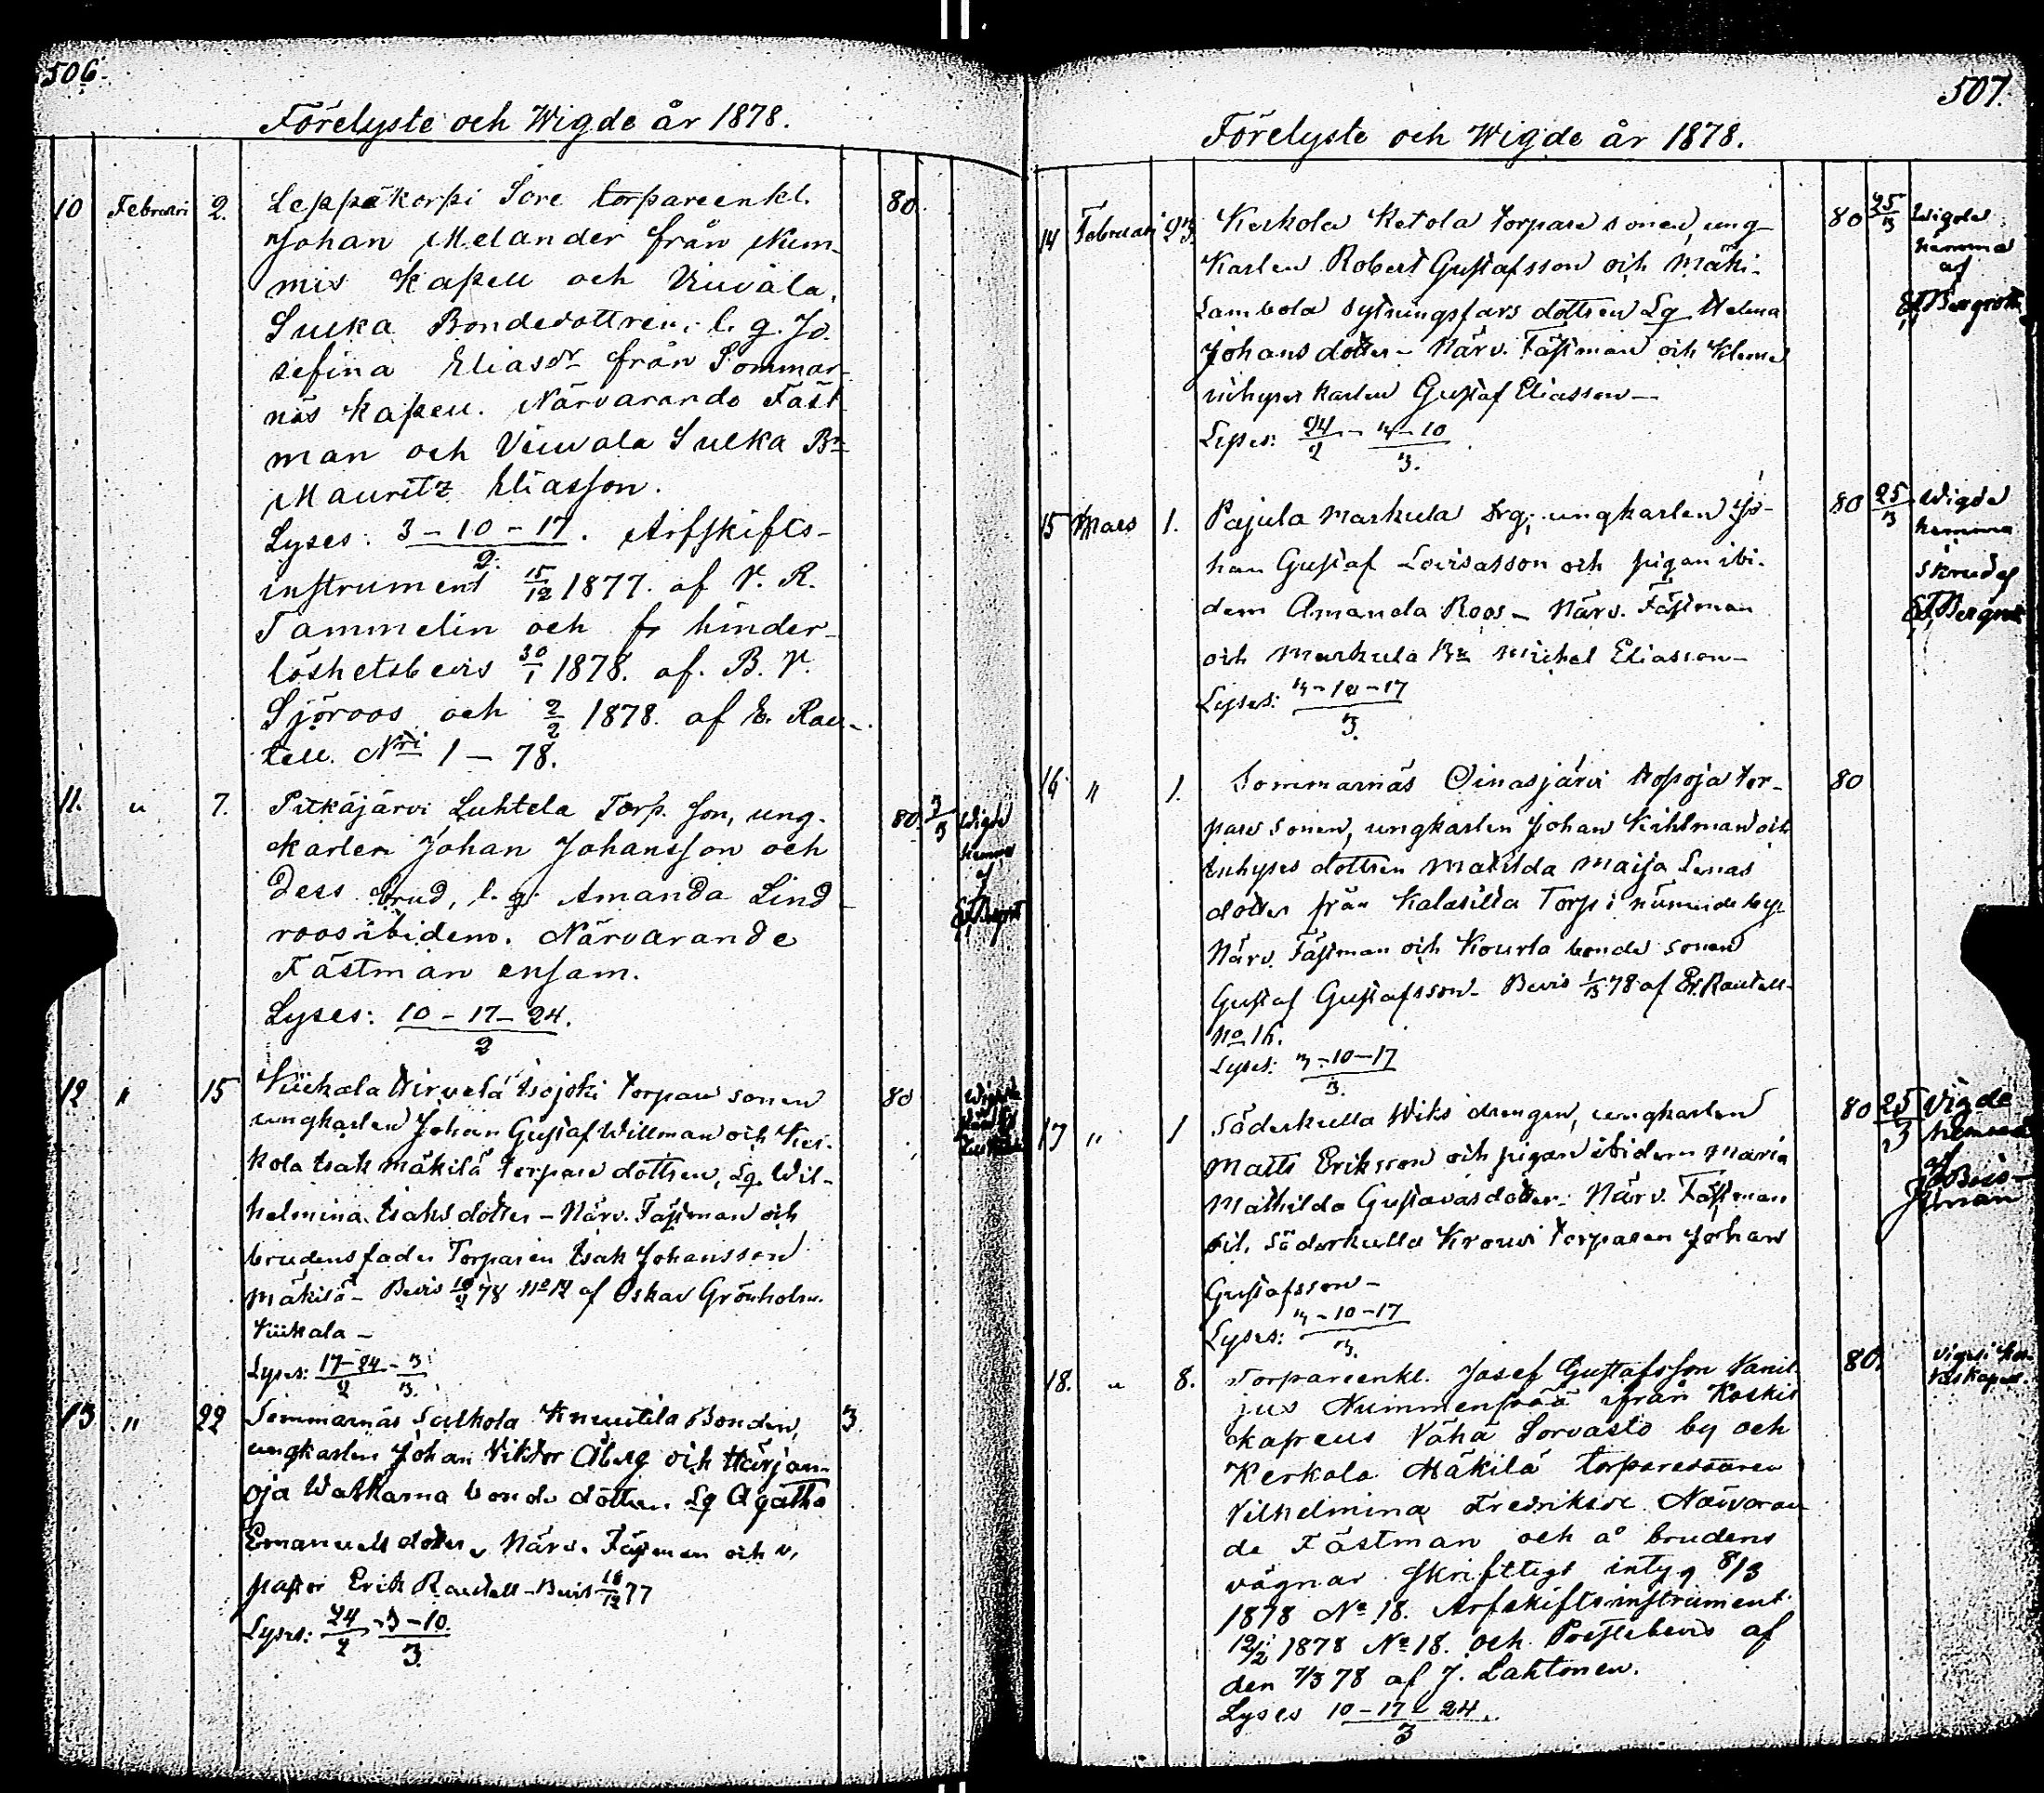 506.
Förelyste och Wigde år 1878.
10 Februari 2. Leppäkorpi Sore torpareenkl. 80
Johan Melander från Num-
mis Kapell och Viuvala,
Suka Bondedottren, l. g. Jo-
sefina Eliasdr från Sommar-
näs Kapell. Närvarande Fäst-
man och Viuvala Sulka Bn
Mauritz Eliasson.
Lyses: 3-10-17/2. Arfskifts-
instrument 15/12 1877. af V. R.
Tammelin och fr hinder-
löshetsbevis 30/1 1878. af. B. V.
Sjöroos och 2/2 1878. af E. Rau-
tell. Nri 1-78.
11. " 7. Pitkäjärvi Luhtela Torp. son, ung- 80. 3/3 Wigde
karlen Johan Johansson och hemma
dess brud, l. g. Amanda Lind- af
roos ibidem. Närvarande
Fästman ensam.
Lyses: 10-17-24./2
12 " 15 Kiikala Hirvelä Isojoki torpare sonen 80
ungkarlen Johan Gustaf Willman och Ker-
kola Isak Mäkilä torpare dottren, Lg. Wil-
helmina Isaks dotter - Närv. Fästman och
brudens fader Torparen Isak Johansson
Mäkilä - Bevis 10/2 78 No 12 af Oskar Grönholm.
Kiikala -
Lyses: 17-24/2 - 3/3.
13 " 22 Sommarnäs Salkola Knuutila Bonden, 3.
ungkarlen Johan Viktor Öberg och Härjän-
oja Watkama bonde dottren Lg Agatha
Emanuels dotter, Närv. Fästman och v.
pastor Erik Rautell - Bevis 18/12 77
Lyses: 24/2 - 3-10./3.
507.
Förelyste och Wigde år 1878.
14 Februari 23. Kerkola Ketola torpare sonen, ung- 80 25/3 Wigde
Karlen Robert Gustafsson och Mäki- hemma
Lambola sytningsfars dottren Lg Helena af
Johans dotter - Närv. Fästman och EJ Bergroth
inhyses karlen Gustaf Eliasson -
Lyses: 24/2 - 3-10/3.
15 Mars 1. Pajula Markula Drg; ungkarlen Jo- 80 25/3 Wigde
han Gustaf Lovisasson och pigan ibi- hemma
dem Amanda Roos - Närv. Fästman
och Markula Bn Michel Eliasson -
Lyses: 3-10-17/3.
16 " 1. Sommarnäs Oinasjärvi Hopoja tor- 80
pare sonen, ungkarlen Johan Kihlman och
Inhyses dottren Matilda Maija Lenas
dotter från Kalasilta Torp i
Närv. Fästman och Kourla bonde sonen
Gustaf Gustafsson - Bevis 1/3 78 af Er. Rautell -
No 16.
Lyses: 3-10-17/3.
17 " 1 Söderkulla Wiks drengen, ungkarlen 80 25/3 Vigde
Matts Eriksson och pigan ibidem Maria hemma
Mathilda Gustavas dotter - Närv. Fästman af
och Söderkulla Krouvi torparen Johan
Gustafsson -
Lyses: 3-10-17/3.
18. " 8. Torpareenkl. Josef Gustafsson Vanil- 80.
jus Nummenpää ifrån Koskis
kapells Vähä Sorvasto by och
Kerkola Mäkilä torparedottren
Vilhelmina Fredriksdr. Närvaran-
de Fästman och å brudens
vägnar skriftligt intyg 8/3
1878 No 18. Arfskiftsinstrument
12/2 1878 No 18. och Prestebevis af
den 7/3 78 af J. Lahtonen.
Lyses 10-17-24./3